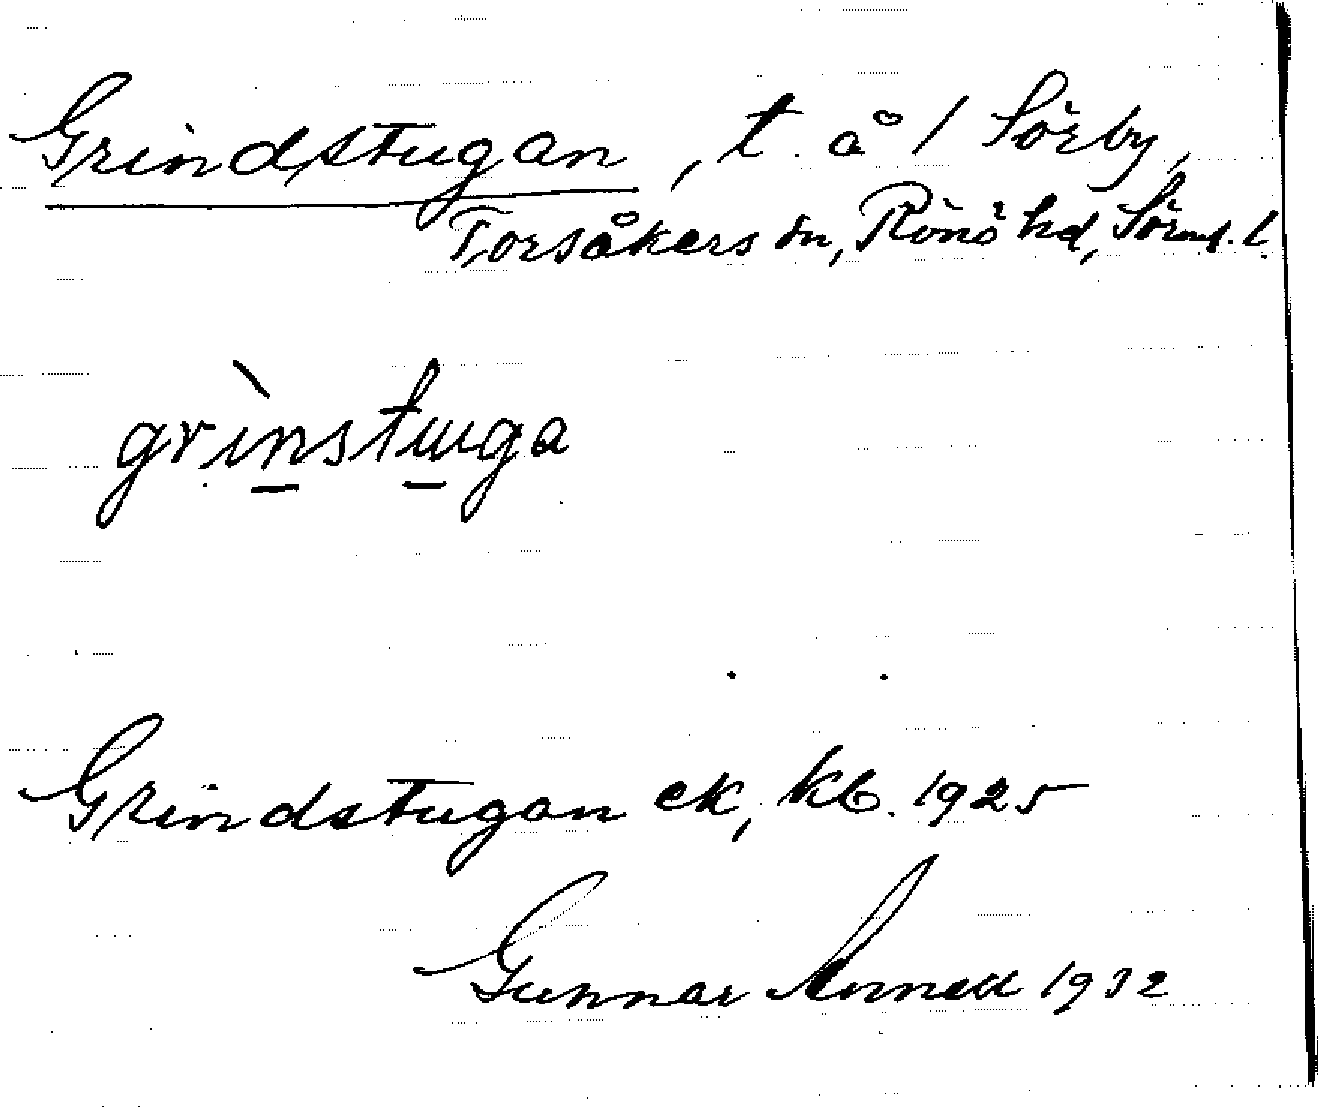 Grindstugan, t. å / Sörby,
Forsåkers sn, Rönö hd, Sörml. l.
grìnstuga
Grindstugan ek, kb. 1925
Gunnar 1932